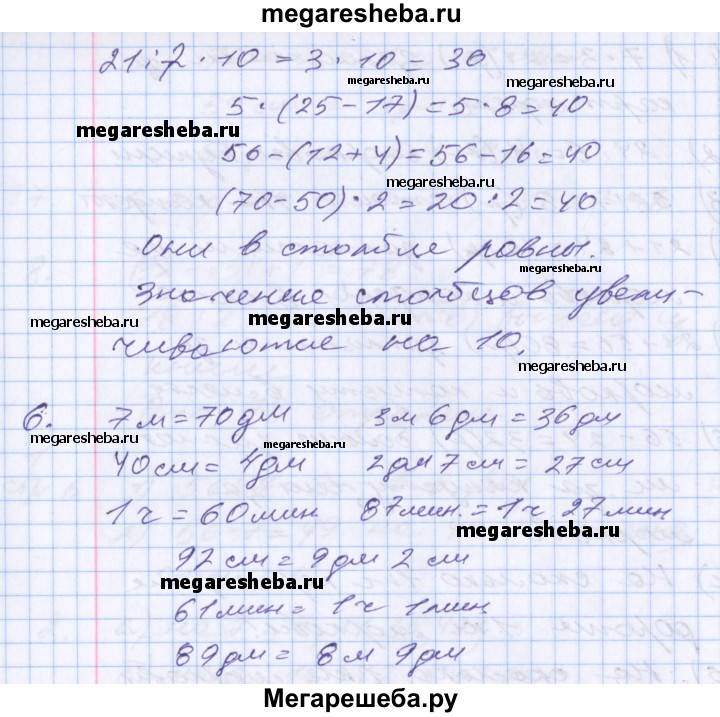 megaresheba.ru
21:7·10=3·10=30
megaresheba.ru
megaresheba.ru
5·(25-17)=5·8=40
megaresheba.ru
56-(12+4)=56-16=40
megaresheba.ru
(70-50)·2=20·2=40
Они в столбце равны.
megaresheba.ru
Значение столбцов увели-
megaresheba.ru
megaresheba.ru
чиваются на 10.
megaresheba.ru
6. 7м=70дм 3м 6дм=36дм
megaresheba.ru
megaresheba.ru
40см=4дм 2дм 7см=27см
1ч=60мин 87мин.=1ч 27мин
megaresheba.ru
92см=9дм 2см
megaresheba.ru
61мин=1ч 1мин
89дм=8м 9дм
Мегарешеба.ру